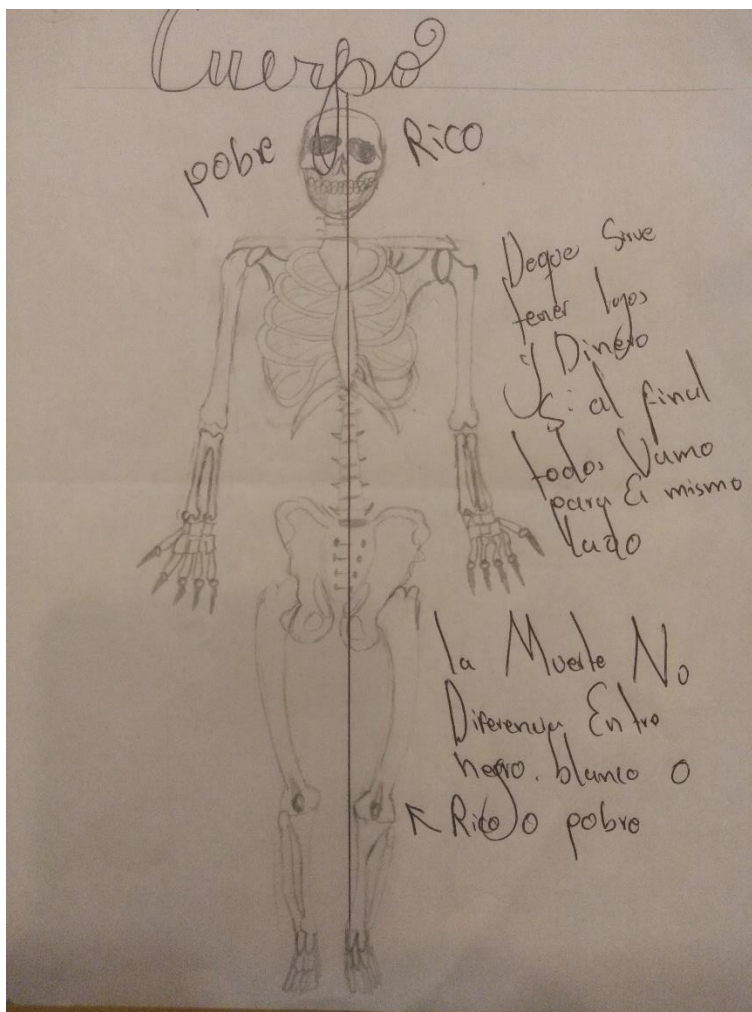 Cuerpo
pobre
Rico
Deque Sirve
tener lujos
y Dinero
Si al final
todos Vamo
para El mismo
lado
la Muerte No
Diferencia Entre
negro. blanco O
Rico O pobre